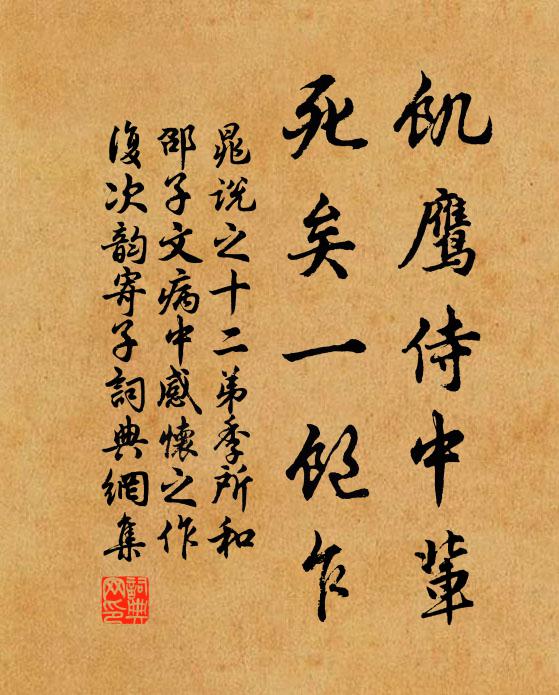 飢鷹侍中輩
死矣一飽乍
晁說之十二弟季所和
邵子文病中感懷之作
復次韵寄子詞典網集
詞典网印